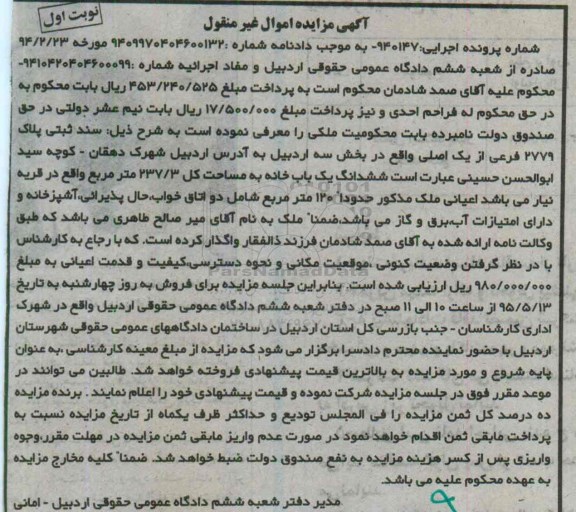 نوبت اول
آگهی مزایده اموال غیر منقول
شماره پرونده اجرایی:۹۴۰۱۴۷- به موجب دادنامه شماره :۹۴۰۹۹۷۰۴۰۴۶۰۰۱۳۲ مورخه ۹۴/۲/۲۳
صادره از شعبه ششم دادگاه عمومی حقوقی اردبیل و مفاد اجرائیه شماره :۹۴۱۰۴۲۰۴۰۴۶۰۰۰۹۹-
محکوم علیه آقای صمد شادمان محکوم است به پرداخت مبلغ ۴۵۳/۲۴۰/۵۲۵ ریال بابت محکوم به
در حق محکوم له فراحم احدی و نیز پرداخت مبلغ ۱۷/۵۰۰/۰۰۰ ریال بابت نیم عشر دولتی در حق
صندوق دولت نامبرده بابت محکومیت ملکی را معرفی نموده است به شرح ذیل: سند ثبتی پلاک
۲۷۷۹ فرعی از یک اصلی واقع در بخش سه اردبیل به آدرس اردبیل شهرک دهقان - کوچه سید
ابوالحسن حسینی عبارت است ششدانگ یک باب خانه به مساحت کل ۲۳۷/۳ متر مربع واقع در قریه
نیار می باشد اعیانی ملک مذکور حدودا" ۱۲۰ متر مربع شامل دو اتاق خواب،حال پذیرائی،آشپزخانه و
دارای امتیازات آب،برق و گاز می باشد،ضمنا" ملک به نام آقای میر صالح طاهری می باشد که طبق
وکالت نامه ارائه شده به آقای صمد شادمان فرزند ذالفقار واگذار کرده است. که با رجاع به کارشناس
با در نظر گرفتن وضعیت کنونی ،موقعیت مکانی و نحوه دسترسی،کیفیت و قدمت اعیانی به مبلغ
۹۸۰/۰۰۰/۰۰۰ ریل ارزیابی شده است. بنابراین جلسه مزایده برای فروش به روز چهارشنبه به تاریخ
۹۵/۵/۱۳ از ساعت ۱۰ الی ۱۱ صبح در دفتر شعبه ششم دادگاه عمومی حقوقی اردبیل واقع در شهرک
اداری کارشناسان - جنب بازرسی کل استان اردبیل در ساختمان دادگاههای عمومی حقوقی شهرستان
اردبیل با حضور نماینده محترم دادسرا برگزار می شود که مزایده از مبلغ معینه کارشناسی ،به عنوان
پایه شروع و مورد مزایده به بالاترین قیمت پیشنهادی فروخته خواهد شد. طالبین می توانند در
موعد مقرر فوق در جلسه مزایده شرکت نموده و قیمت پیشنهادی خود را اعلام نمایند . برنده مزایده
ده درصد کل ثمن مزایده را فی المجلس تودیع و حداکثر ظرف یکماه از تاریخ مزایده نسبت به
پرداخت مابقی ثمن اقدام خواهد نمود در صورت عدم واریز مابقی ثمن مزایده در مهلت مقرر،وجوه
واریزی پس از کسر هزینه مزایده به نفع صندوق دولت ضبط خواهد شد. ضمنا" کلیه مخارج مزایده
به عهده محکوم علیه می باشد.
مدیر دفتر شعبه ششم دادگاه عمومی حقوقی اردبیل - امانی